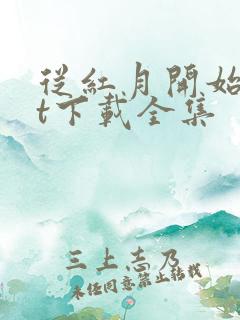 從紅月開始
t下載全集
三上志乃
未經同意禁止轉載